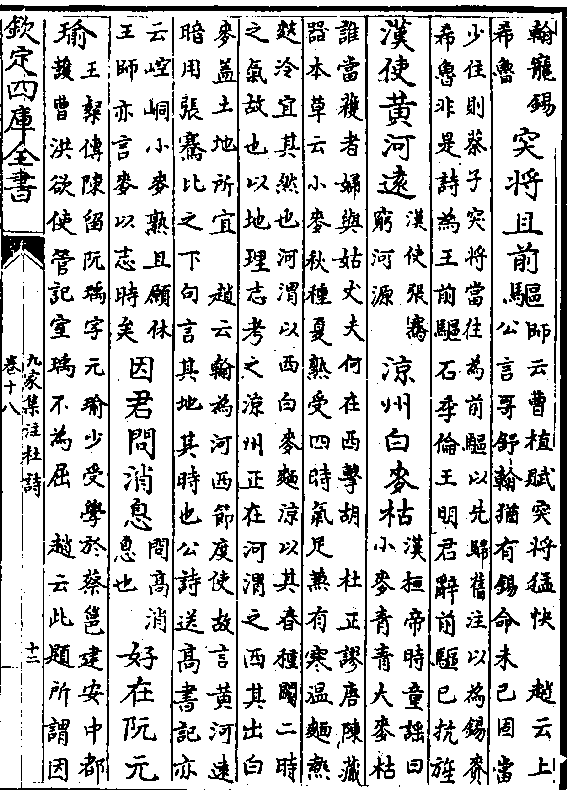 翰寵錫
希魯
突將且前驅
師云曹植賦突將猛快 趙云上
公言哥舒翰猶有錫命未已因當
少住則蔡子突將當往為前驅以先歸舊注以為錫賚
希魯非是詩為王前驅石季倫王明君辭前驅已抗旌
漢使黃河遠
漢使張騫
窮河源
涼州白麥枯
漢桓帝時童謠曰
小麥青青大麥枯
誰當穫者婦與姑丈夫何在西擊胡 杜正謬唐陳藏
器本草云小麥秋種夏熟受四時氣足蒸有寒温麵熱
麩冷宜其然也河渭以西白麥麵涼以其春種闕二時
之氣故也以地理志考之涼州正在河渭之西其出白
麥蓋土地所宜 趙云翰為河西節度使故言黃河遠
暗用張騫比之下句言其地其時也公詩送高書記亦
云崆峒小麥熟且願休
王師亦言麥以志時矣
因君問消息
問高消
息也
好在阮元
瑜
王粲傳陳留阮瑀字元瑜少受學於蔡邕建安中都
護曹洪欲使管記室瑀不為屈 趙云此題所謂因
欽定四庫全書
九家集注杜詩
卷十八
十二